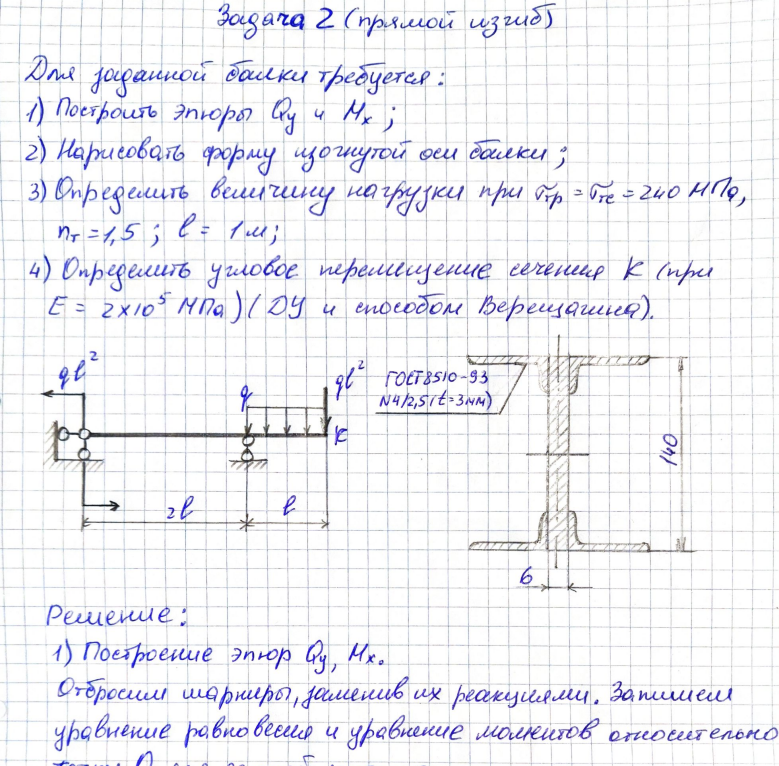 Задача 2 (прямой изгиб)
Для заданной балки требуется:
1) Построить эпюры Qy и Mx;
2) Нарисовать форму изогнутой оси балки;
3) Определить величину нагрузки при σтр = σтс = 240 МПа,
nт = 1,5; l = 1м;
4) Определить угловое перемещение сечения К (при
E = 2×10⁵ МПа) (ДУ и способом Верещагина).
ql²
q
ql²
K
2l
l
ГОСТ 8510-93
N4/2,5 (t=3мм)
140
6
Решение:
1) Построение эпюр Qy, Mx.
Отбросим шарниры, заменив их реакциями. Запишем
уравнение равновесия и уравнение моментов относительно